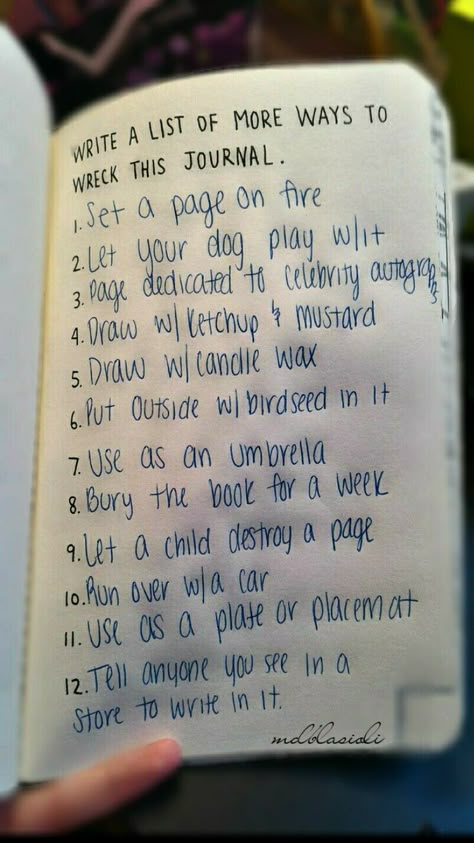 WRITE A LIST OF MORE WAYS TO
WRECK THIS JOURNAL.
1. Set a page on fire
2. Let your dog play w/it
3. Page dedicated to celebrity autographs
4. Draw w/ketchup & mustard
5. Draw w/candle wax
6. Put outside w/birdseed in it
7. Use as an umbrella
8. Bury the book for a week
9. Let a child destroy a page
10. Run over w/a car
11. Use as a plate or placemat
12. Tell anyone you see in a
store to write in it.
mdblasioli